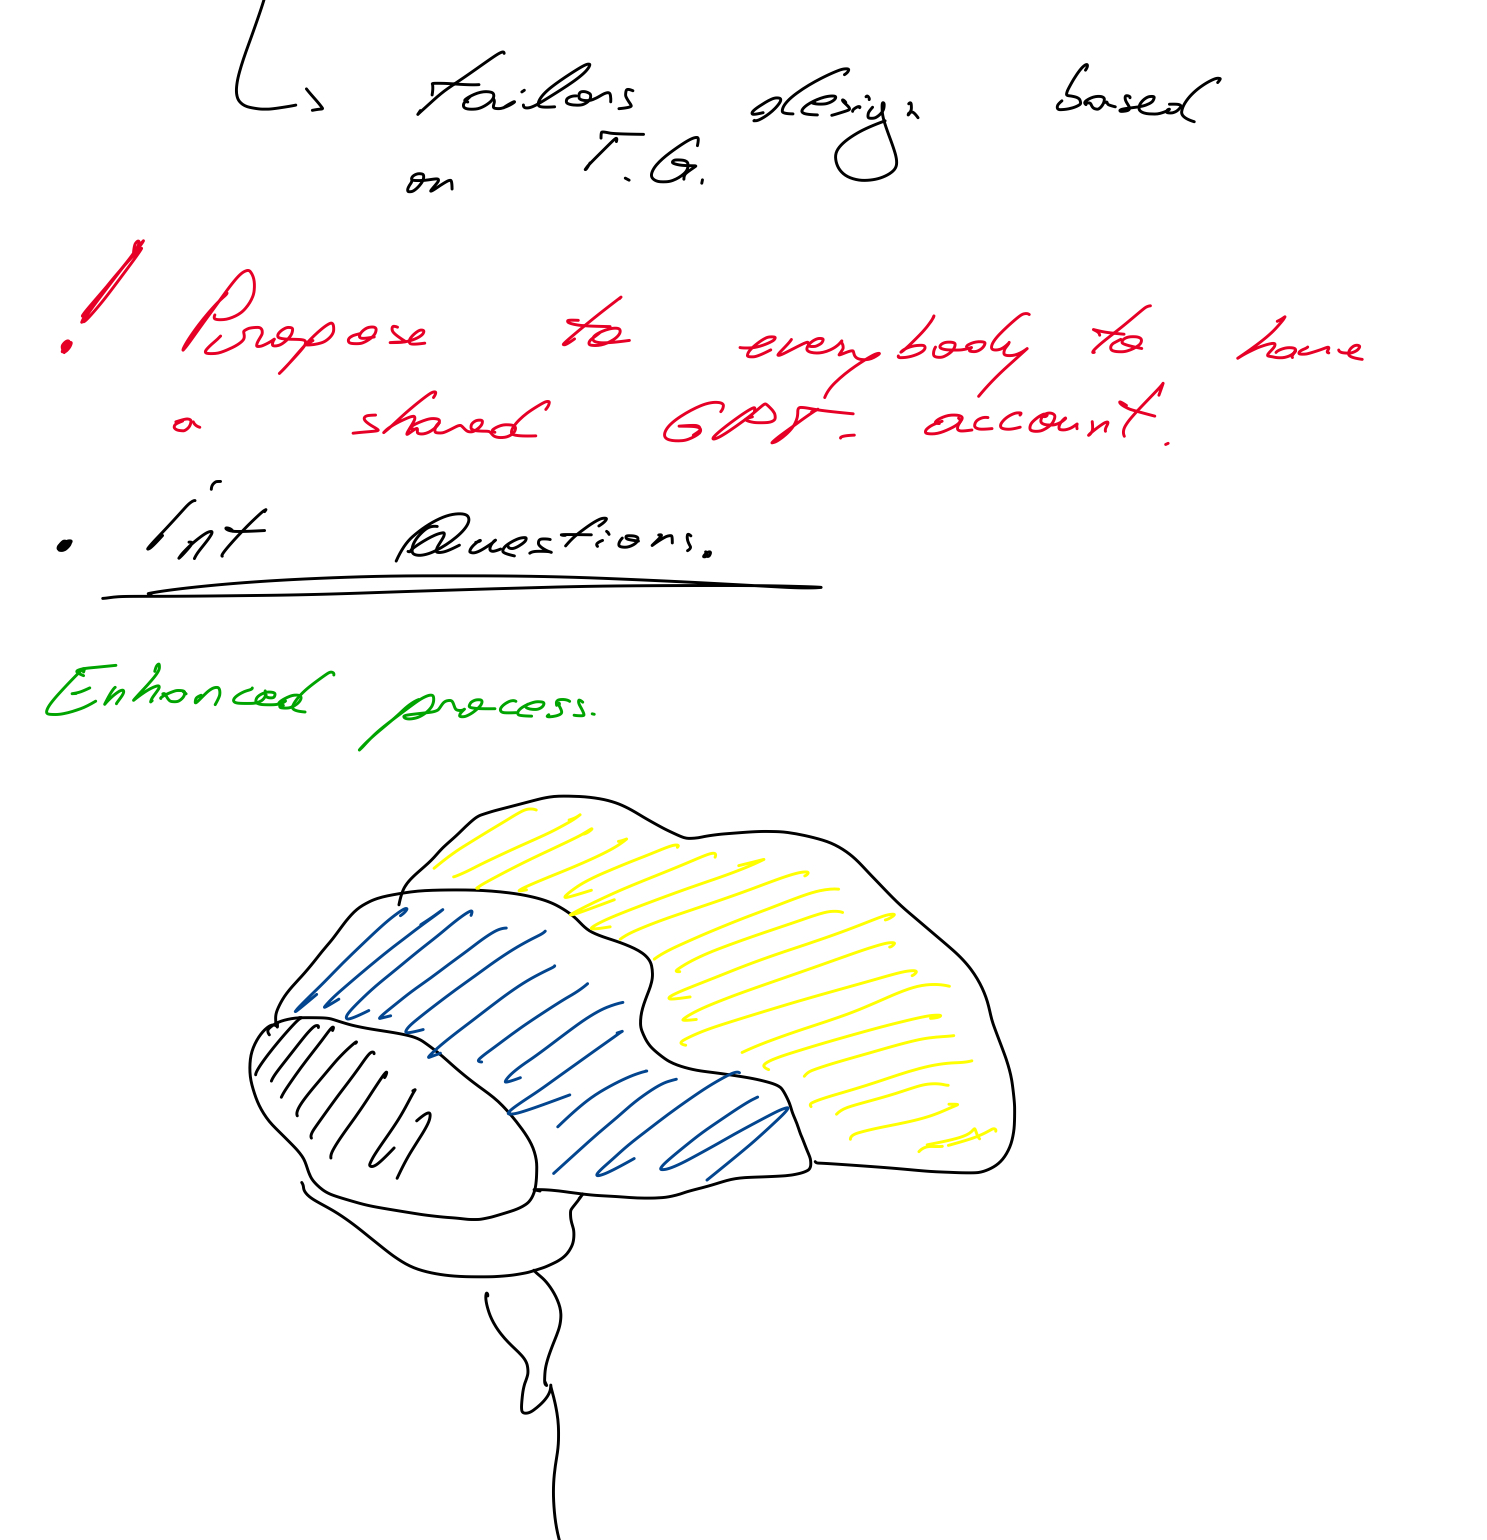 ↳ tailors design based
on T.G.
! Propose to everybody to have
a shared GPT- account.
• Int Questions.
Enhanced process.